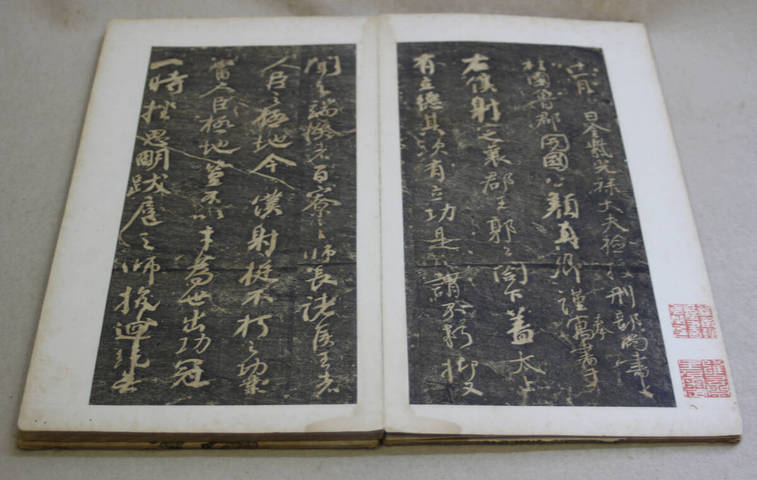 十一月日金紫光祿大夫檢校刑部尚書上
柱國魯郡開國公顏真卿謹奉寓書于
右僕射定襄郡王郭公閤下蓋太上
有立德其次有立功是之謂不朽抑又
聞之端揆者百寮之師長諸侯王者
人臣之極地今僕射挺不朽之功業
當人臣極地豈不以才為世出功冠
一時挫思明跋扈之師抗迴紇無